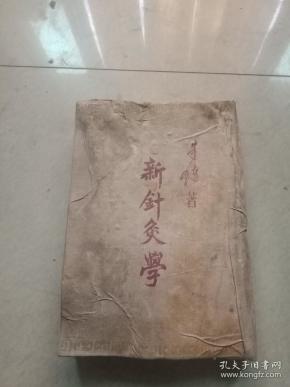 新針灸學
朱璉著
孔夫子旧书网